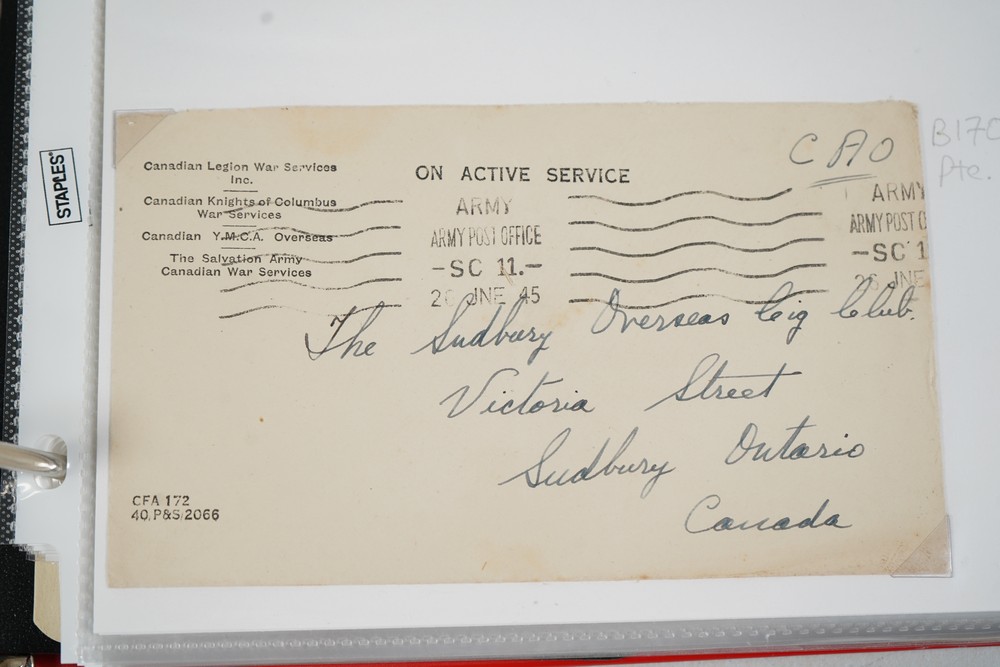 STAPLES
Canadian Legion War Services
Inc.
Canadian Knights of Columbus
War Services
Canadian Y.M.C.A. Overseas
The Salvation Army
Canadian War Services
ON ACTIVE SERVICE
CAO
B170
Pte.
ARMY
ARMY POST OFFICE
-SC 11.-
26 JNE 45
ARMY
ARMY POST O
-SC 1
26 JNE
The Sudbury Overseas Cig Club.
Victoria Street
Sudbury Ontario
Canada
CFA 172
40/P&S/2066